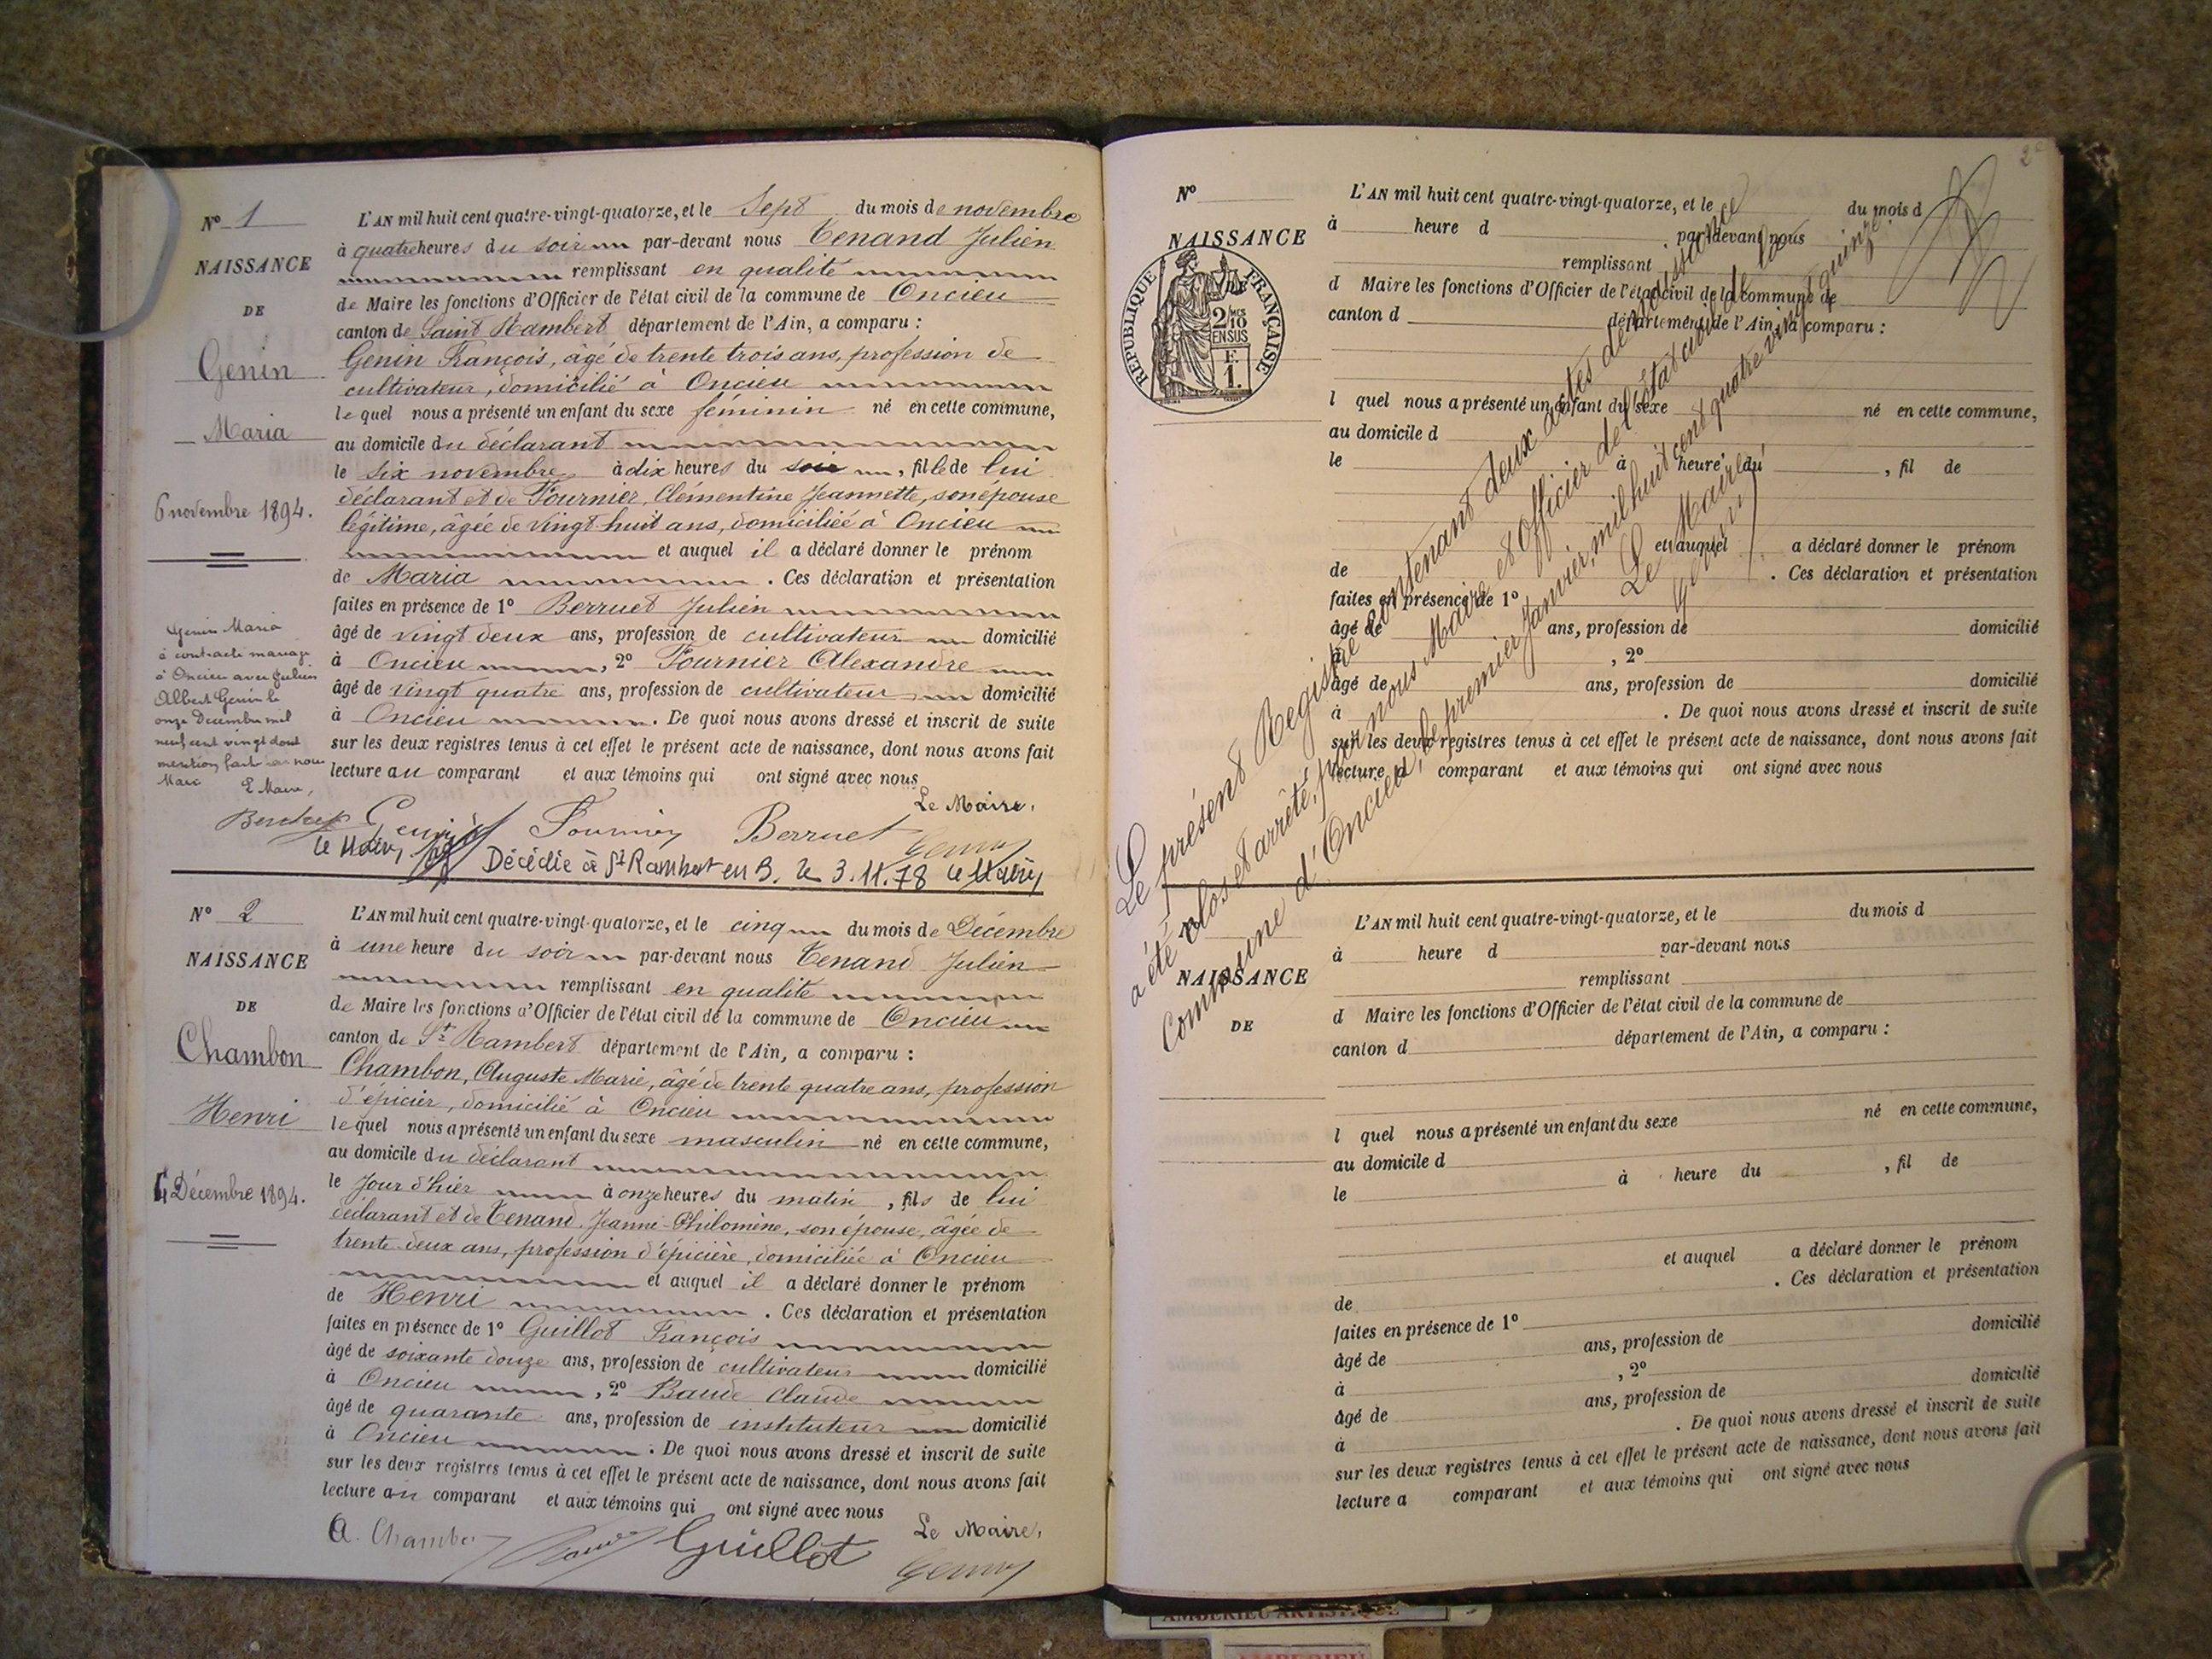 Nº 1
NAISSANCE
DE
Genin
Maria
6 novembre 1894.
Genin Maria
a contracté mariage
à Oncieu avec Julien
Albert Genin le
onze Decembre mil
neuf cent vingt dont
mention faite par nous
Maire
Le Maire,
L'AN mil huit cent quatre-vingt-quatorze, et le Sept du mois de novembre
à quatre heures du soir par-devant nous Tenand Julien
remplissant en qualité
de Maire les fonctions d'Officier de l'état civil de la commune de Oncieu
canton de Saint Rambert département de l'Ain, a comparu :
Genin François, âgé de trente trois ans, profession de
cultivateur, domicilié à Oncieu
lequel nous a présenté un enfant du sexe féminin né en cette commune,
au domicile du déclarant
le six novembre à dix heures du soir, fille de lui
déclarant et de Fournier, Clémentine Jeannette, son épouse
légitime, âgée de vingt huit ans, domiciliée à Oncieu
et auquel il a déclaré donner le prénom
de Maria . Ces déclaration et présentation
faites en présence de 1º Berruet Julien
âgé de vingt deux ans, profession de cultivateur domicilié
à Oncieu , 2º Fournier Alexandre
âgé de vingt quatre ans, profession de cultivateur domicilié
à Oncieu . De quoi nous avons dressé et inscrit de suite
sur les deux registres tenus à cet effet le présent acte de naissance, dont nous avons fait
lecture au comparant et aux témoins qui ont signé avec nous
Le Maire,
Genin Fournier Berruet
Le Maire, Décédée à St Rambert en B. le 3.11.78 Le Maire,
Nº 2
NAISSANCE
DE
Chambon
Henri
4 Décembre 1894.
L'AN mil huit cent quatre-vingt-quatorze, et le cinq du mois de Décembre
à une heure du soir par-devant nous Tenand Julien
remplissant en qualité
de Maire les fonctions d'Officier de l'état civil de la commune de Oncieu
canton de St Rambert département de l'Ain, a comparu :
Chambon, Auguste Marie, âgé de trente quatre ans, profession
d'épicier, domicilié à Oncieu
lequel nous a présenté un enfant du sexe masculin né en cette commune,
au domicile du déclarant
le jour d'hier à onze heures du matin, fils de lui
déclarant et de Tenand, Jeanne-Philomène, son épouse, âgée de
trente-deux ans, profession d'épicière, domiciliée à Oncieu
et auquel il a déclaré donner le prénom
de Henri . Ces déclaration et présentation
faites en présence de 1º Guillot François
âgé de soixante douze ans, profession de cultivateur domicilié
à Oncieu , 2º Baude Claude
âgé de quarante ans, profession de instituteur domicilié
à Oncieu . De quoi nous avons dressé et inscrit de suite
sur les deux registres tenus à cet effet le présent acte de naissance, dont nous avons fait
lecture au comparant et aux témoins qui ont signé avec nous
A. Chambon Guillot Le Maire,
2e
Nº
NAISSANCE
RÉPUBLIQUE FRANÇAISE
2/10 MES
EN SUS
F.
1.
DE
L'AN mil huit cent quatre-vingt-quatorze, et le du mois d
à heure d par-devant nous
remplissant
d Maire les fonctions d'Officier de l'état civil de la commune de
canton d département de l'Ain, a comparu :
l quel nous a présenté un enfant du sexe né en cette commune,
au domicile d
le à heure du , fil de
et auquel a déclaré donner le prénom
de . Ces déclaration et présentation
faites en présence de 1º
âgé de ans, profession de domicilié
à , 2º
âgé de ans, profession de domicilié
à . De quoi nous avons dressé et inscrit de suite
sur les deux registres tenus à cet effet le présent acte de naissance, dont nous avons fait
lecture a comparant et aux témoins qui ont signé avec nous
Le présent Registre contenant deux actes de naissance
a été clos et arrêté, par nous Maire et Officier de l'état civil de la
Commune d'Oncieu, le premier Janvier, mil huit cent quatre vingt quinze.
Le Maire,
Nº
NAISSANCE
DE
L'AN mil huit cent quatre-vingt-quatorze, et le du mois d
à heure d par-devant nous
remplissant
d Maire les fonctions d'Officier de l'état civil de la commune de
canton d département de l'Ain, a comparu :
l quel nous a présenté un enfant du sexe né en cette commune,
au domicile d
le à heure du , fil de
et auquel a déclaré donner le prénom
de . Ces déclaration et présentation
faites en présence de 1º
âgé de ans, profession de domicilié
à , 2º
âgé de ans, profession de domicilié
à . De quoi nous avons dressé et inscrit de suite
sur les deux registres tenus à cet effet le présent acte de naissance, dont nous avons fait
lecture a comparant et aux témoins qui ont signé avec nous
AMBERIEU ARTISTIQUE
AMBERIEU